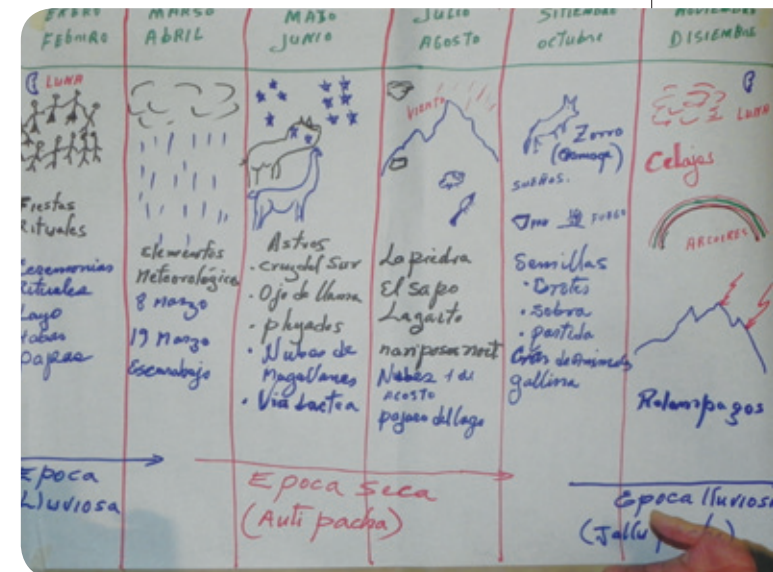 FEBRERO
LUNA
Fiestas
Rituales
Ceremonias
Rituales
Layo
Habas
Papas
MARSO
ABRIL
elementos
Meteorológica
8 Marzo
19 Marzo
Escarabajo
MAYO
JUNIO
Astros
• Cruz del Sur
• Ojo de llama
• phyados
• Nubes de
Magallanes
• Via Lactea
JULIO
AGOSTO
VIENTO
La piedra
El sapo
Lagarto
mariposa noct
Nubes 1 de
AGOSTO
pajaro del lago
SITIEMBRE
octubre
Zorro
SUEÑOS.
FUEGO
Semillas
• Brotes
• Sobra
• partida
Crias de Animales
gallina
NOVIEMBRE
DISIEMBRE
LUNA
Celajes
ARCOIRES
Relampagos
Epoca
Lluviosa
Epoca Seca
(Auti pacha)
Epoca lluviosa
(Jallu